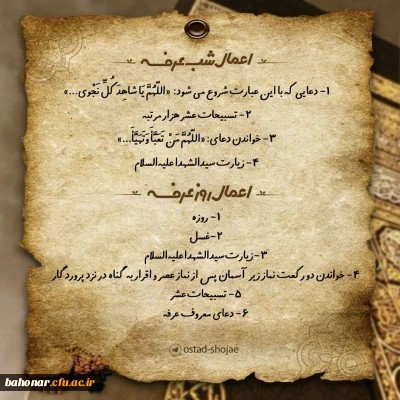 اعمال شب عرفه
۱- دعایی که با این عبارت شروع می شود: «اللّهُمَّ یَا شاهِدَ کُلِّ نَجْوی...»
۲- تسبیحات عشر هزار مرتبه
۳- خواندن دعای: «اللّهُمَّ مَنْ تَعَبَّأَ وَ تَهَیَّأَ...»
۴- زیارت سیدالشهدا علیه‌السلام
اعمال روز عرفه
۱- روزه
۲- غسل
۳- زیارت سیدالشهدا علیه‌السلام
۴- خواندن دو رکعت نماز زیر آسمان پس از نماز عصر و اقرار به گناه در نزد پروردگار
۵- تسبیحات عشر
۶- دعای معروف عرفه
ostad-shojae
bahonar.cfu.ac.ir